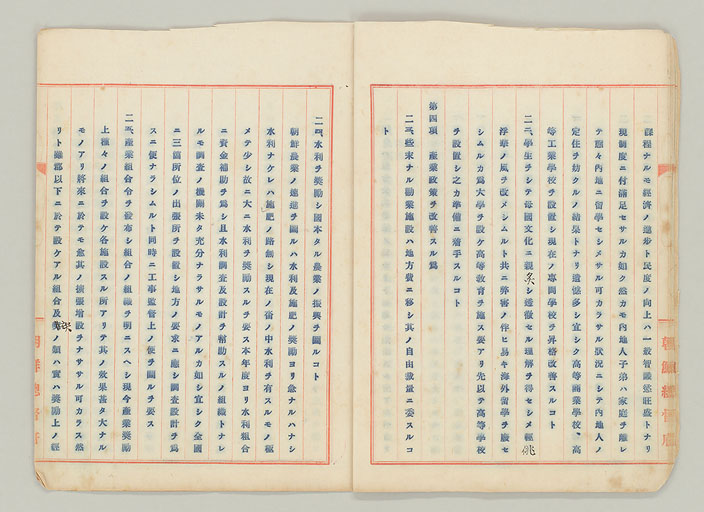 課程ナルモ經濟ノ進歩ト民度ノ向上ハ一般智識慾旺盛トナリ
現制度ニ付滿足セサルカ如ク然カモ内地人子弟ハ家庭ヲ離レ
テ態々内地ニ留學セシメサル可カラサル狀況ニシテ内地人ノ
定住ヲ妨クルノ結果トナリ遺憾多シ宜シク高等商業學校、高
等工業學校ヲ設置シ現在ノ專門學校ヲ昇格改善スルコト
二二、學生ヲシテ母國文化ニ親炙シ透徹セル理解ヲ得セシメ輕佻
浮華ノ風ヲ改メシムルト共ニ弊害ノ伴ヒ易キ海外留學ヲ廢セ
シムルカ爲大學ヲ設ケ高等教育ヲ施ス要アリ先以テ高等學校
ヲ設置シ之カ準備ニ着手スルコト
第四項 産業政策ヲ改善スル爲
二三、些末ナル勸業施設ハ地方費ニ移シ其ノ自由裁量ニ委スルコ
ト
朝鮮總督府
二四、水利ヲ奬勵シ國本タル農業ノ振興ヲ圖ルコト
朝鮮農業ノ速進ヲ圖ルハ水利及施肥ノ奬勵ヨリ急ナルハナシ
水利ナケレハ施肥ノ路無シ現在ノ畓ノ中水利ヲ有スルモノ極
メテ少シ故ニ大ニ水利ヲ奬勵スルヲ要ス本年度ヨリ水利組合
ニ資金補助ヲ爲シ且水利調査及設計ヲ幇助スルノ組織トナレ
ルモ調査ノ機關未タ充分ナラサルモノアルカ如シ宜シク全國
ニ三箇所位ノ出張所ヲ設置シ地方ノ要求ニ應シ調査設計ヲ爲
スニ便ナラシムルト同時ニ工事監督上ノ便ヲ圖ルヲ要ス
二五、産業組合令ヲ發布シ組合ノ組織ヲ明ニスヘシ現今産業奬勵
上種々ノ組合ヲ設ケ各施設スル所アリテ其ノ效果甚タ大ナル
モノアリ將來ニ於テモ愈其ノ擴張增設ヲナササル可カラス然
リト雖郡以下ニ於テ設ケアル組合及契ノ類ハ實ハ奬勵上ノ經
朝鮮總督府